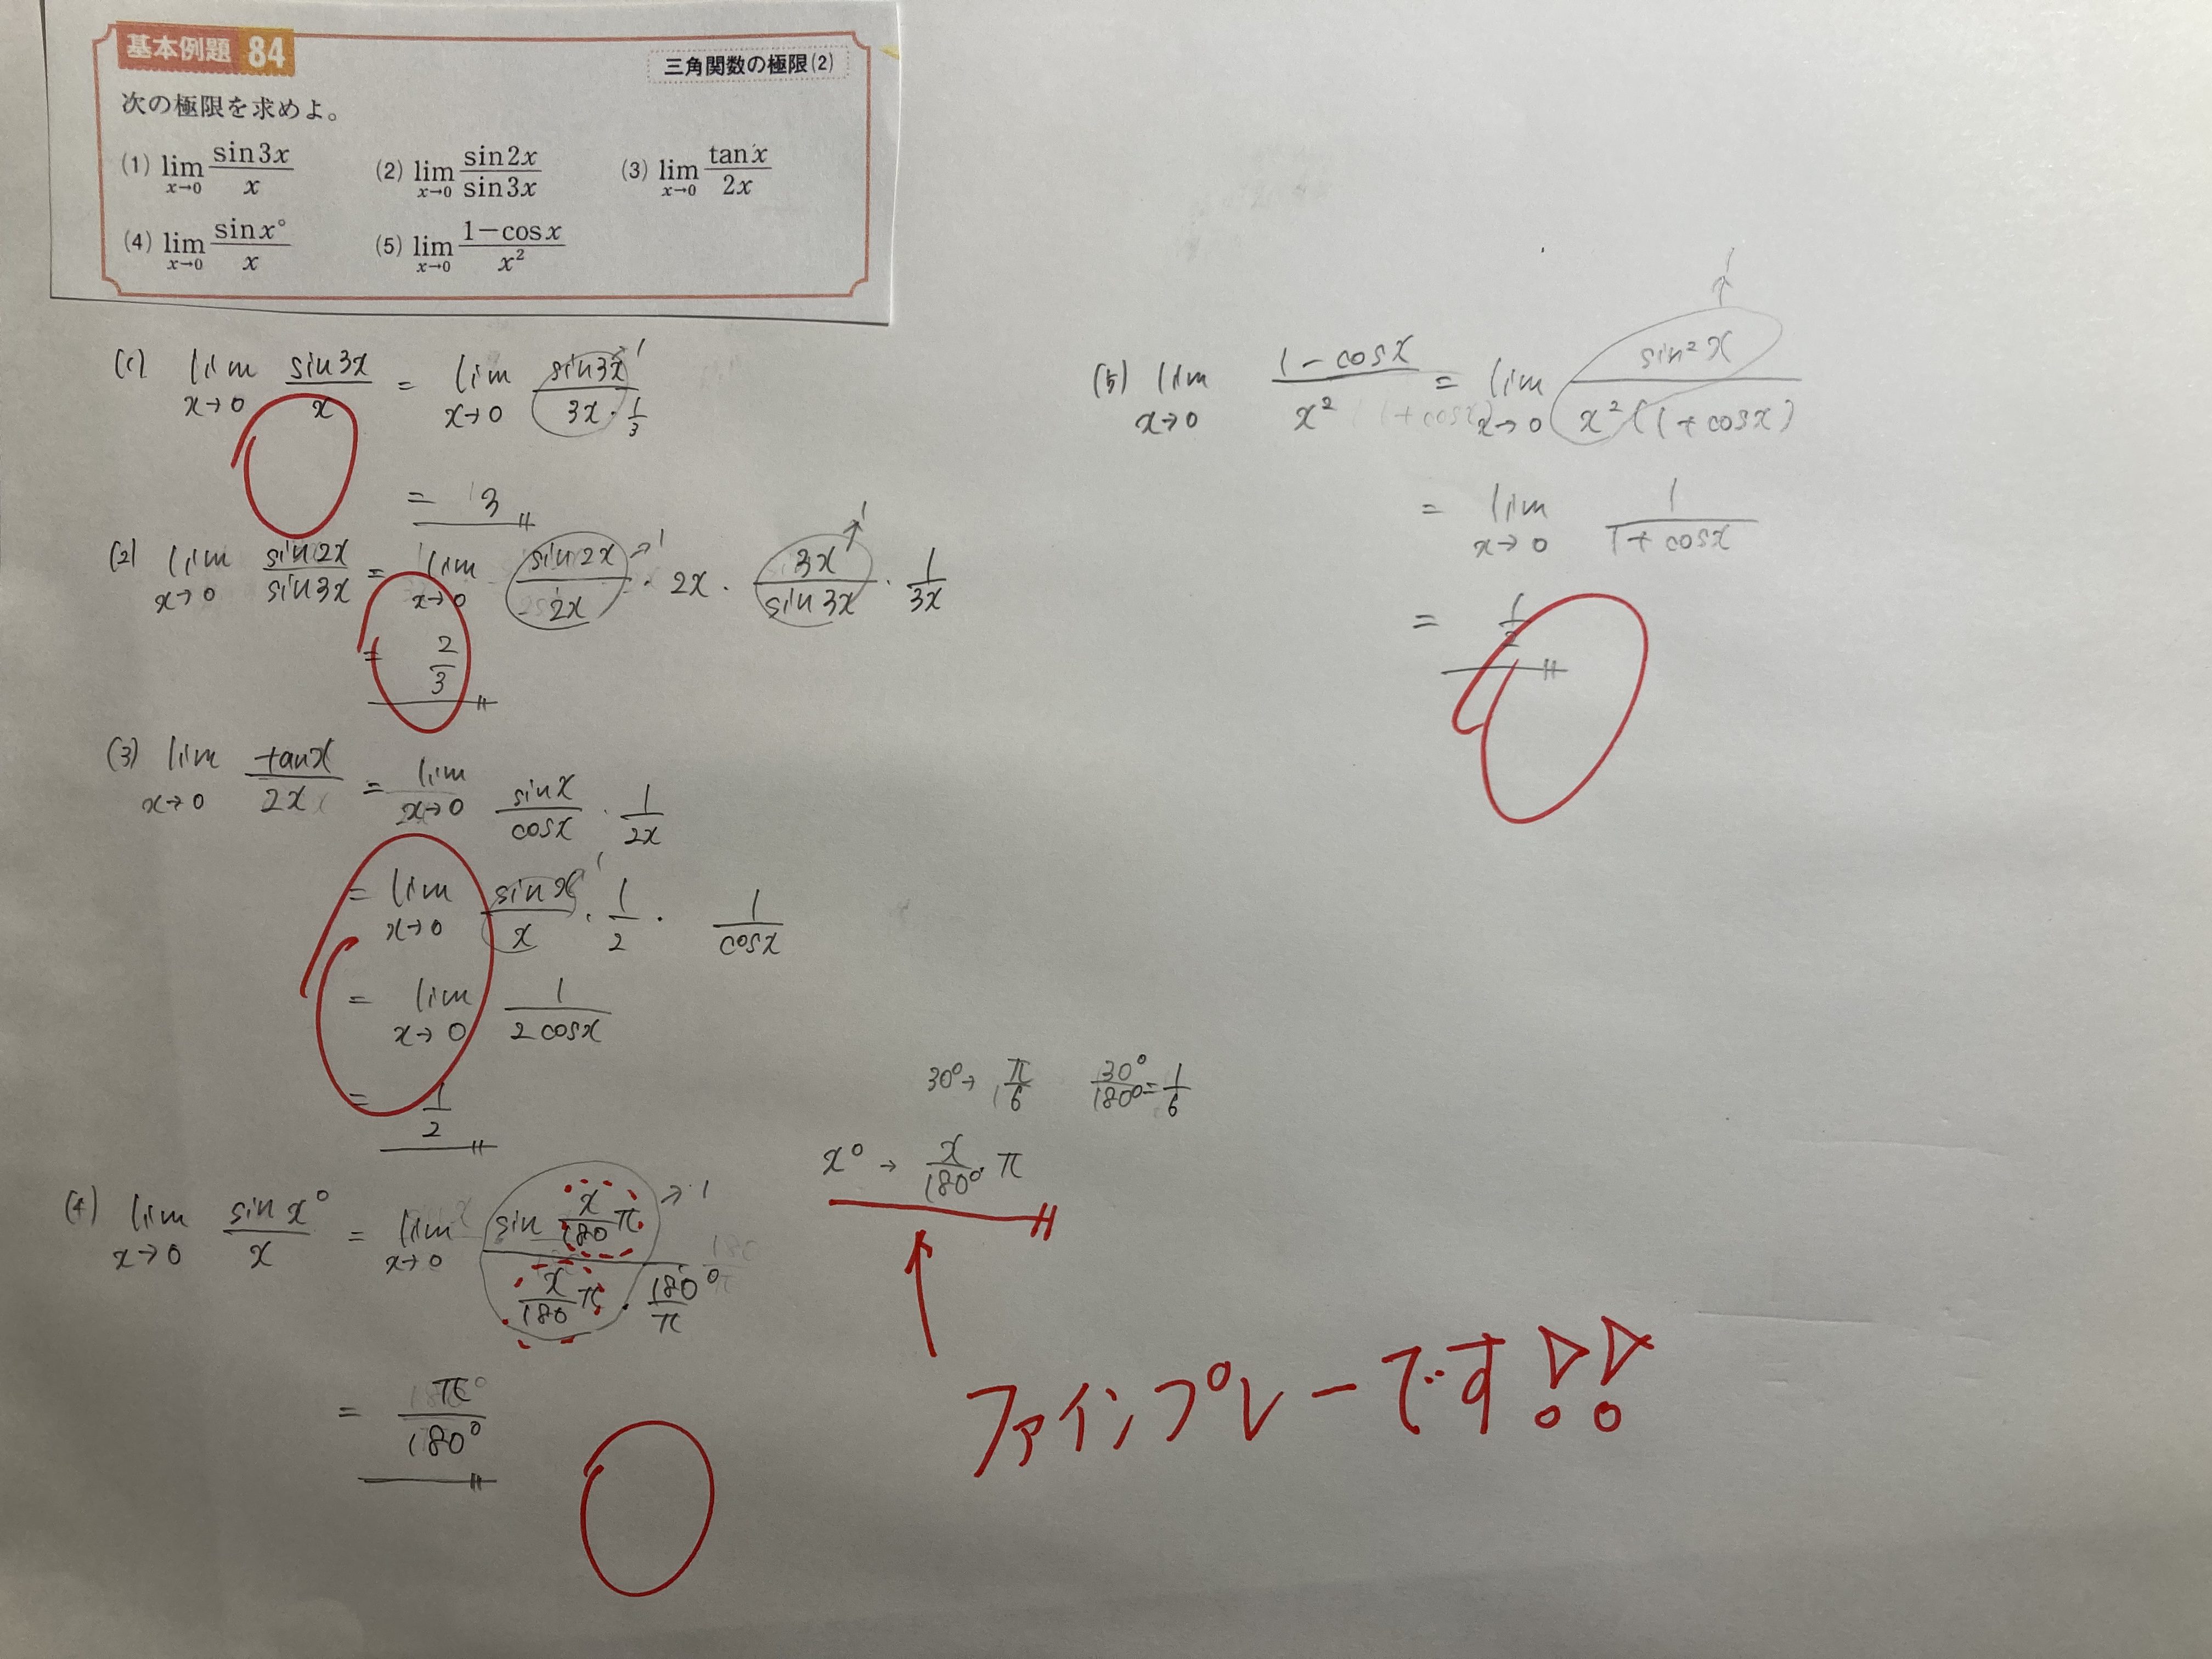 基本例題 84 三角関数の極限(2)
次の極限を求めよ。
(1) lim_{x→0} sin3x/x (2) lim_{x→0} sin2x/sin3x (3) lim_{x→0} tanx/2x
(4) lim_{x→0} sinx°/x (5) lim_{x→0} (1-cosx)/x²
(1) lim_{x→0} sin3x/x = lim_{x→0} sin3x/(3x・1/3) →1
= 3
(2) lim_{x→0} sin2x/sin3x = lim_{x→0} sin2x/2x →1 ・ 2x ・ 3x/sin3x →1 ・ 1/3x
= 2/3
(3) lim_{x→0} tanx/2x = lim_{x→0} sinx/cosx ・ 1/2x
= lim_{x→0} sinx/x →1 ・ 1/2 ・ 1/cosx
= lim_{x→0} 1/(2cosx)
= 1/2
30°→ π/6 30°/180° = 1/6
x° → x/180° ・ π
(4) lim_{x→0} sinx°/x = lim_{x→0} sin(x/180 π)/(x/180 π ・ 180°/π) →1
= π/180°
ファインプレーです!!
(5) lim_{x→0} (1-cosx)/x² = lim_{x→0} sin²x/(x²(1+cosx)) →1
= lim_{x→0} 1/(1+cosx)
= 1/2